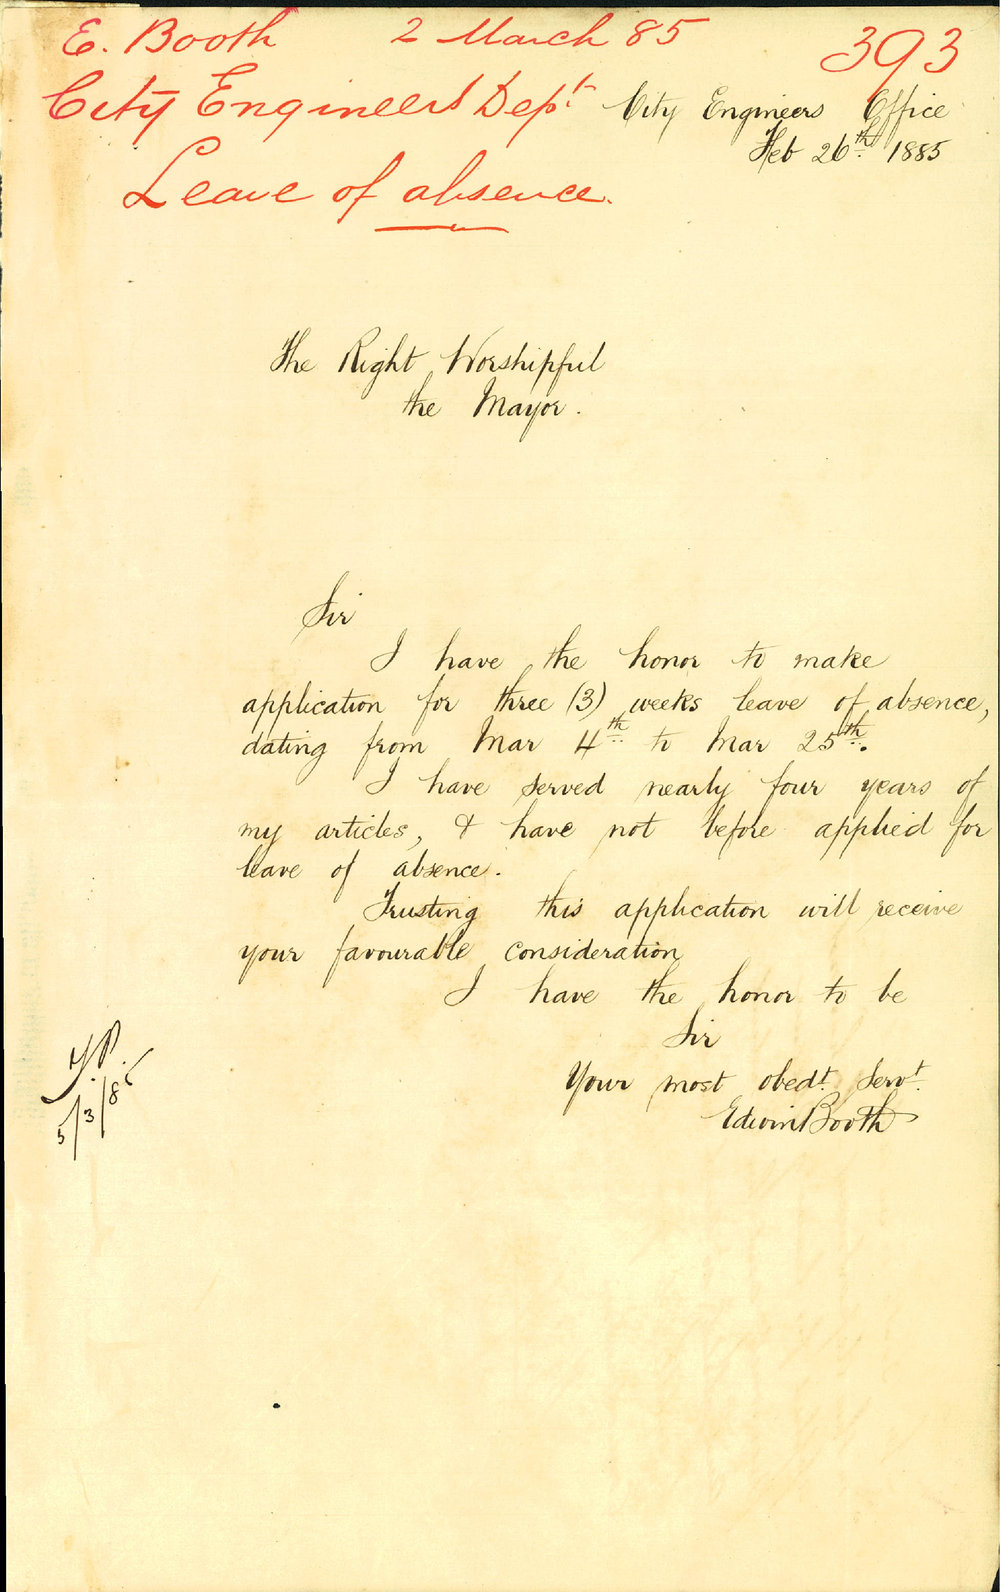 E. Booth 2 March 85 393
City Engineers Dept.
Leave of absence.
City Engineers Office
Feb 26th. 1885
The Right Worshipful
the Mayor.
Sir
I have the honor to make
application for three (3) weeks leave of absence,
dating from Mar 4th to Mar 25th.
I have served nearly four years of
my articles, & have not before applied for
leave of absence.
Trusting this application will receive
your favourable consideration
I have the honor to be
Sir
Your most obedt. Servt.
Edwin Booth
5/3/85